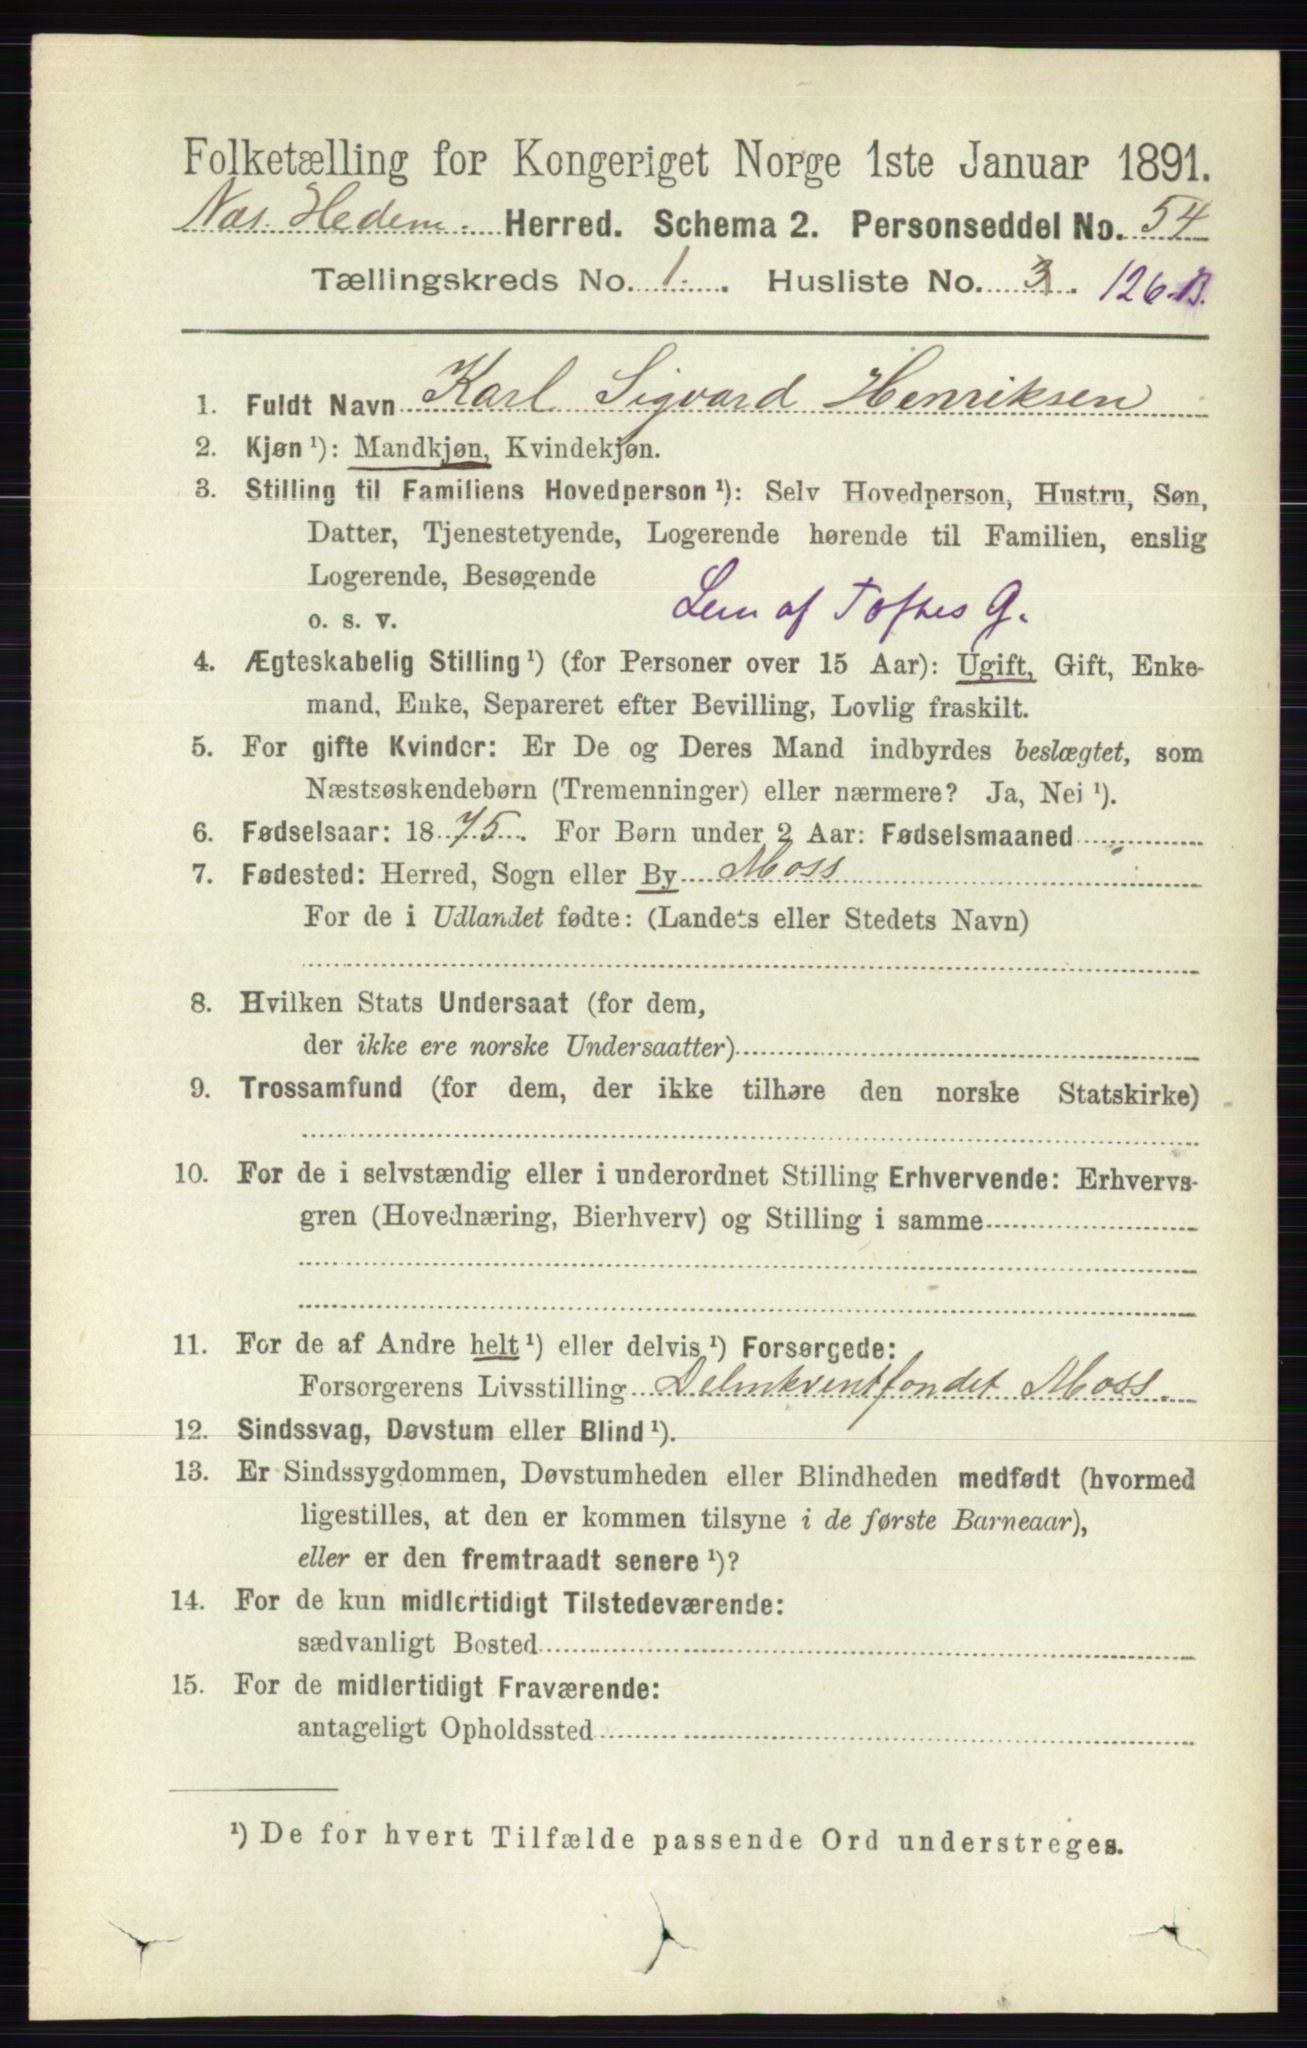 Folketælling for Kongeriget Norge 1ste Januar 1891.
Nes. Hedem. Herred. Schema 2. Personseddel No. 54
Tællingskreds No. 1. Husliste No. 3. 126-B.
1. Fuldt Navn Karl Sigvard Henriksen
2. Kjøn ¹): Mandkjøn, Kvindekjøn.
3. Stilling til Familiens Hovedperson ¹): Selv Hovedperson, Hustru, Søn,
Datter, Tjenestetyende, Logerende hørende til Familien, enslig
Logerende, Besøgende
o. s. v. Lem af Toftes G.
4. Ægteskabelig Stilling ¹) (for Personer over 15 Aar): Ugift, Gift, Enke-
mand, Enke, Separeret efter Bevilling, Lovlig fraskilt.
5. For gifte Kvinder: Er De og Deres Mand indbyrdes beslægtet, som
Næstsøskendebørn (Tremenninger) eller nærmere? Ja, Nei ¹).
6. Fødselsaar: 1875. For Børn under 2 Aar: Fødselsmaaned
7. Fødested: Herred, Sogn eller By Moss
For de i Udlandet fødte: (Landets eller Stedets Navn)
8. Hvilken Stats Undersaat (for dem,
der ikke ere norske Undersaatter)
9. Trossamfund (for dem, der ikke tilhøre den norske Statskirke)
10. For de i selvstændig eller i underordnet Stilling Erhvervende: Erhvervs-
gren (Hovednæring, Bierhverv) og Stilling i samme
11. For de af Andre helt ¹) eller delvis ¹) Forsørgede:
Forsørgerens Livsstilling Delinkventfondet Moss.
12. Sindssvag, Døvstum eller Blind ¹).
13. Er Sindssygdommen, Døvstumheden eller Blindheden medfødt (hvormed
ligestilles, at den er kommen tilsyne i de første Barneaar),
eller er den fremtraadt senere ¹)?
14. For de kun midlertidigt Tilstedeværende:
sædvanligt Bosted
15. For de midlertidigt Fraværende:
antageligt Opholdssted
¹) De for hvert Tilfælde passende Ord understreges.